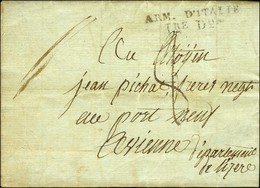 ARM. D'ITALIE
1RE Don
Au Citoyen
jean pichat freres negt
au port neuf
Avienne Departement
de lizere